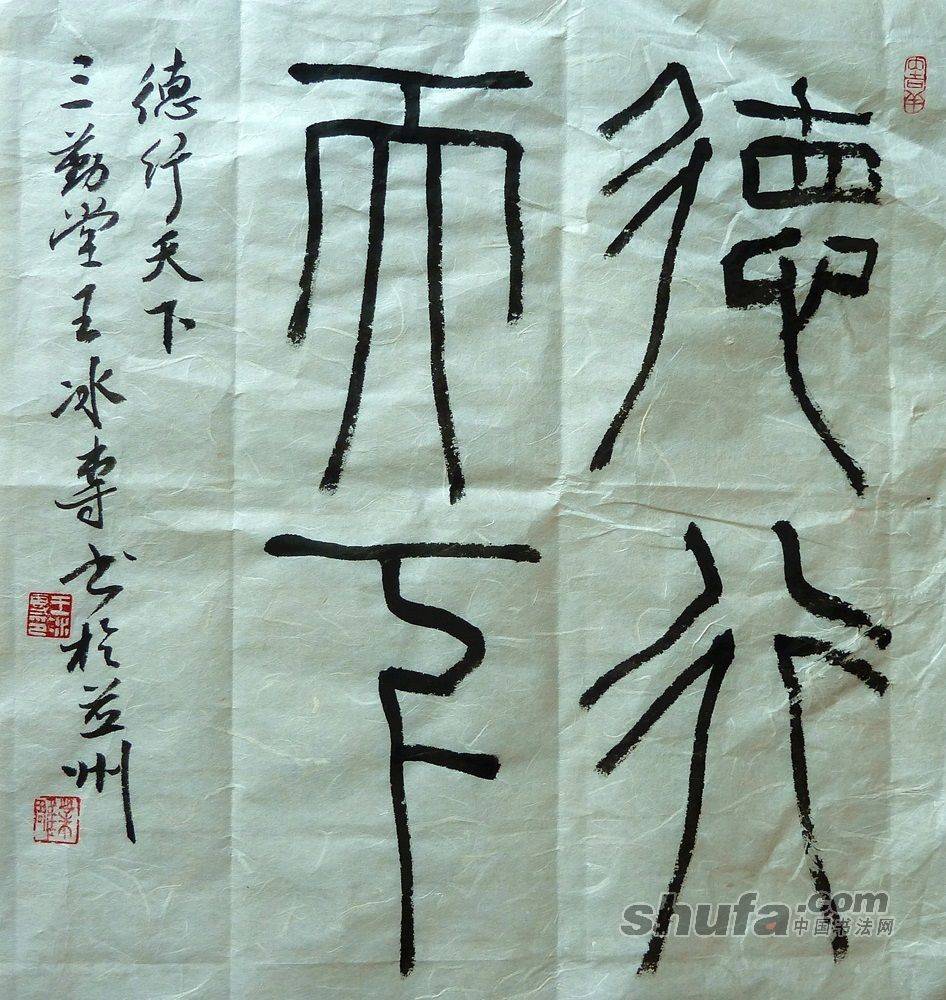 德行
天下
德行天下
三勤堂王冰專书於並州
shufa.com
中国书法网